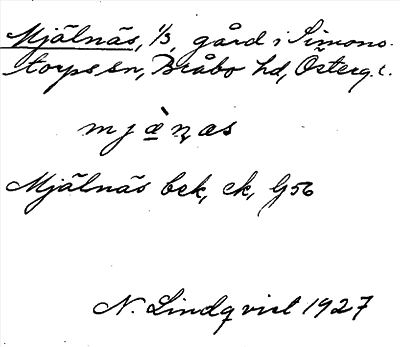 Mjälnäs, 1/3, gård i Simons-
torps sn, Bråbo hd, Österg. l.
mjæ̀ṇæs
Mjälnäs bek, ek, G56
N. Lindqvist 1927